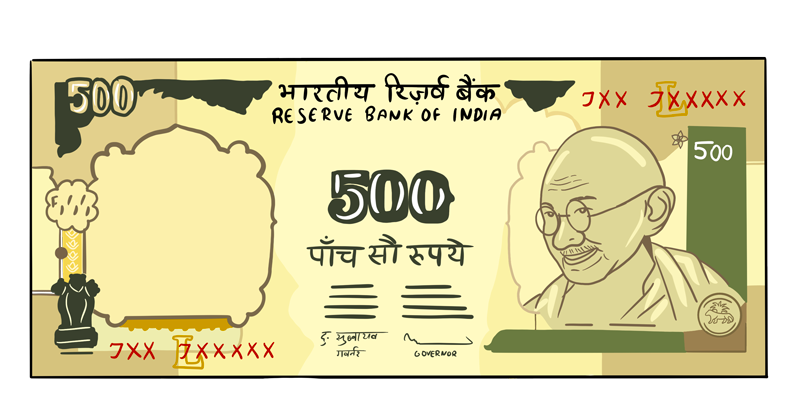 500
भारतीय रिज़र्व बैंक
RESERVE BANK OF INDIA
JXX JXXXXX
L
500
500
पाँच सौ रुपये
गवर्नर
GOVERNOR
JXX JXXXXX
L